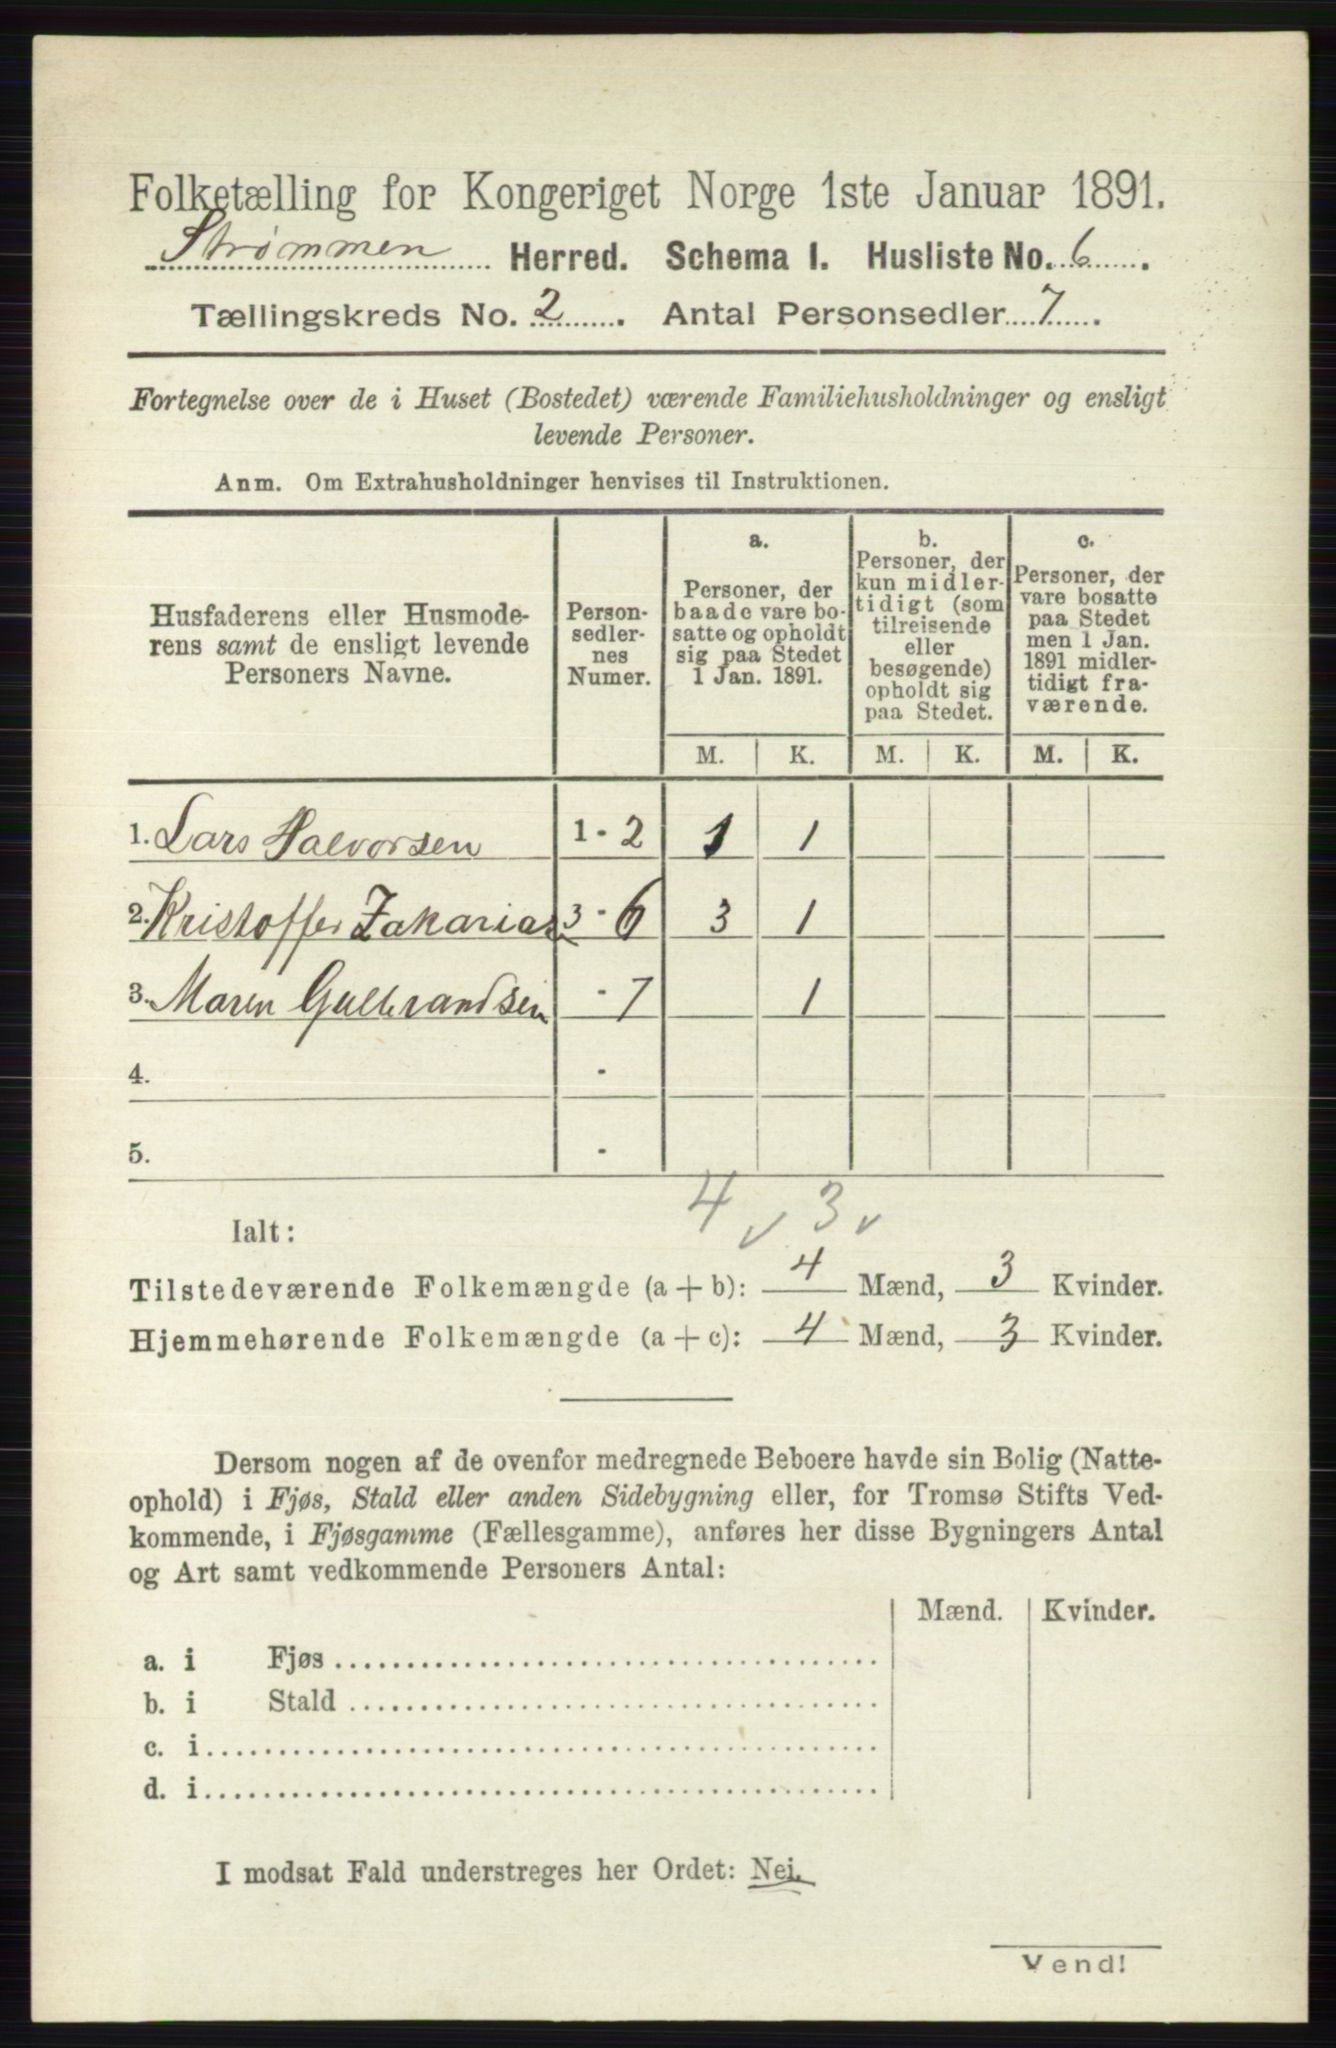 Folketælling for Kongeriget Norge 1ste Januar 1891.
Strømmen Herred. Schema I. Husliste No. 6.
Tællingskreds No. 2. Antal Personsedler 7.
Fortegnelse over de i Huset (Bostedet) værende Familiehusholdninger og ensligt
levende Personer.
Anm. Om Extrahusholdninger henvises til Instruktionen.
Husfaderens eller Husmode-
rens samt de ensligt levende
Personers Navne.
Person-
sedler-
nes
Numer.
a.
Personer, der
baade vare bo-
satte og opholdt
sig paa Stedet
1 Jan. 1891.
b.
Personer, der
kun midler-
tidigt (som
tilreisende
eller
besøgende)
opholdt sig
paa Stedet.
c.
Personer, der
vare bosatte
paa Stedet
men 1 Jan.
1891 midler-
tidigt fra-
værende.
M. K. M. K. M. K.
1. Lars Halvorsen 1 - 2 1 1
2. Kristoffer Zakarias 3 - 6 3 1
3. Maren Gulbrandsen - 7 1
4. -
5. -
4 v 3 v
Ialt:
Tilstedeværende Folkemængde (a + b): 4 Mænd, 3 Kvinder.
Hjemmehørende Folkemængde (a + c): 4 Mænd, 3 Kvinder.
Dersom nogen af de ovenfor medregnede Beboere havde sin Bolig (Natte-
ophold) i Fjøs, Stald eller anden Sidebygning eller, for Tromsø Stifts Ved-
kommende, i Fjøsgamme (Fællesgamme), anføres her disse Bygningers Antal
og Art samt vedkommende Personers Antal:
Mænd. Kvinder.
a. i Fjøs
b. i Stald
c. i
d. i
I modsat Fald understreges her Ordet: Nei.
Vend!